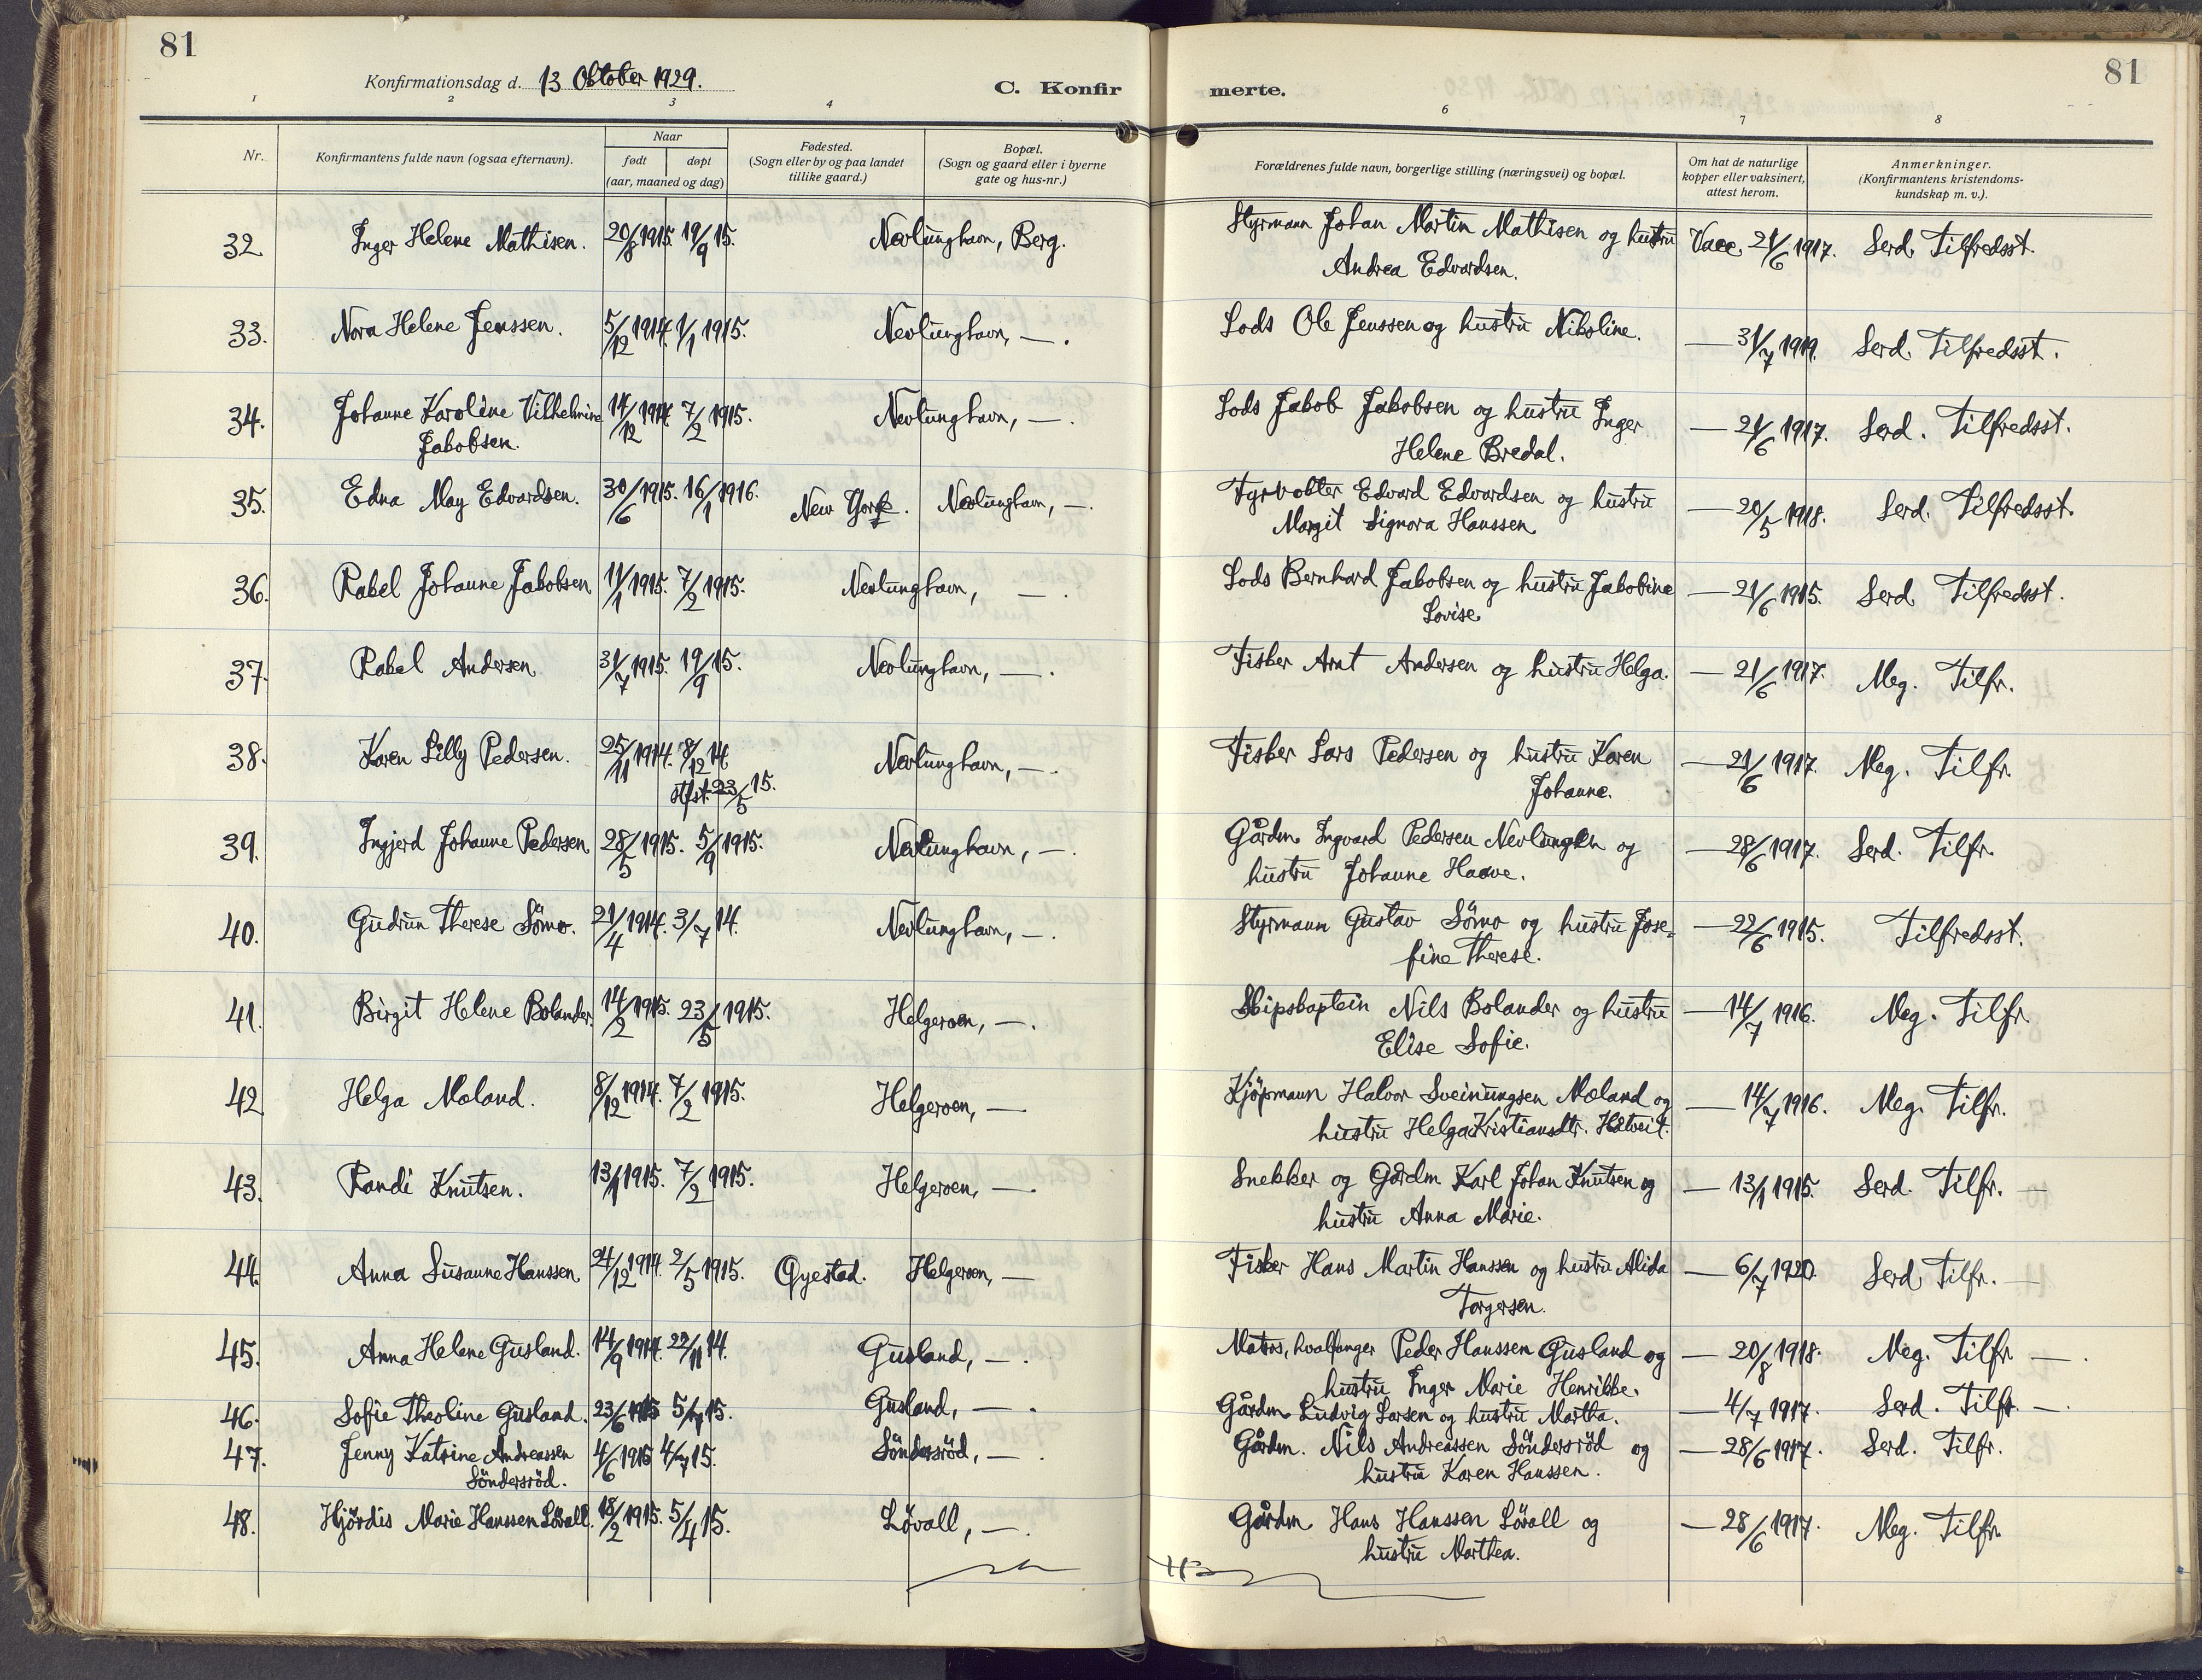 81
81
Konfirmationsdag d. 13 Oktober 1929.
C. Konfir
merte.
1 2 3 4 6 7 8
Nr. Konfirmantens fulde navn (ogsaa efternavn). Naar født døpt (aar, maaned og dag) Fødested. (Sogn eller by og paa landet tillike gaard.) Bopæl. (Sogn og gaard eller i byerne gate og hus-nr.) Forældrenes fulde navn, borgerlige stilling (næringsvei) og bopæl. Om hat de naturlige kopper eller vaksinert, attest herom. Anmerkninger. (Konfirmantens kristendoms-kundskap m. v.).
32 Inger Helene Mathisen. 20/8 1915. 19/9 15. Nevlunghavn, Berg. Styrmann Johan Martin Mathisen og hustru Vacc. 21/6 1917. Serd. Tilfredsst.
Andrea Edvardsen.
33. Nora Helene Jenssen. 5/12 1914. 1/1 1915. Nevlunghavn, —. Lods Ole Jenssen og hustru Nikoline. — 31/7 1919. Serd. Tilfredsst.
34. Johanne Karoline Vilhelmine 14/12 1914 7/2 1915. Nevlunghavn, —. Lods Jakob Jakobsen og hustru Inger — 21/6 1917. Serd. Tilfredsst.
Jakobsen. Helene Bredal.
35. Edna May Edvardsen. 30/6 1915. 16/1 1916. New York. Nevlunghavn, —. Fyrvokter Edvard Edvardsen og hustru — 20/5 1918. Serd. Tilfredsst.
Margit Signora Hanssen
36. Rakel Johanne Jakobsen 11/1 1915. 7/2 1915. Nevlunghavn, —. Lods Bernhard Jakobsen og hustru Jakobine — 21/6 1915. Serd. Tilfredsst.
Lovise
37. Rakel Andersen 31/7 1915. 19/9 15. Nevlunghavn, —. Fisker Arnt Andersen og hustru Helga. — 21/6 1917. Meg. Tilfr.
38. Karen Lilly Pedersen. 25/11 1914. 8/12 14. Nevlunghavn, —. Fisker Lars Pedersen og hustru Karen — 21/6 1917. Meg. Tilfr.
stfst. 23/5 15. Johanne.
39. Ingjerd Johanne Pedersen 28/5 1915. 5/9 1915. Nevlunghavn, —. Gårdm. Ingvard Pedersen Nevlungen og — 28/6 1917. Serd. Tilfr.
hustru Johanne Haave.
40. Gudrun Therese Sömo. 21/4 1914. 3/7 14. Nevlunghavn, —. Styrmann Gustav Sömo og hustru Jose= — 22/6 1915. Tilfredsst.
fine Therese.
41. Birgit Helene Bolander. 14/2 1915. 23/5 1915. Helgeroen, —. Skipskaptein Nils Bolander og hustru — 14/7 1916. Meg. Tilfr.
Elise Sofie.
42 Helga Moland. 8/12 1914. 7/2 1915. Helgeroen, — Kjöpmann Halvor Sveinungsen Moland og — 14/7 1916. Meg. Tilfr.
hustru Helga Kristiansdtr. Hatveit.
43. Randi Knutsen. 13/1 1915. 7/2 1915. Helgeroen, —. Snekker og Gårdm Karl Johan Knutsen og — 13/1 1915. Serd. Tilfr. —
hustru Anna Marie.
44. Anna Susanne Hanssen 24/12 1914. 2/5 1915. Øyestad. Helgeroen, — Fisker Hans Martin Hanssen og hustru Alida — 6/7 1920. Serd. Tilfr. —
Torgersen.
45. Anna Helene Gusland. 14/9 1914. 22/11 14. Gusland, —. Matros, hvalfanger Peder Hanssen Gusland og — 20/8 1918. Meg. Tilfr —.
hustru Inger Marie Henrikke.
46. Sofie Theoline Gusland. 23/6 1915 5/7 15. Gusland, —. Gårdm. Ludvig Larsen og hustru Martha. — 4/7 1917. Serd. Tilfr. —.
47. Jenny Katrine Andreassen 4/6 1915 4/7 15. Söndersröd, —. Gårdm. Nils Andreassen Söndersröd og — 28/6 1917. Serd. Tilfr.
Söndersröd. hustru Karen Hanssen.
48. Hjördis Marie Hanssen Lövall. 18/2 1915. 5/4 15. Lövall, —. Gårdm Hans Hanssen Lövall og — 28/6 1917. Meg. Tilfr.
hustru Marthea.